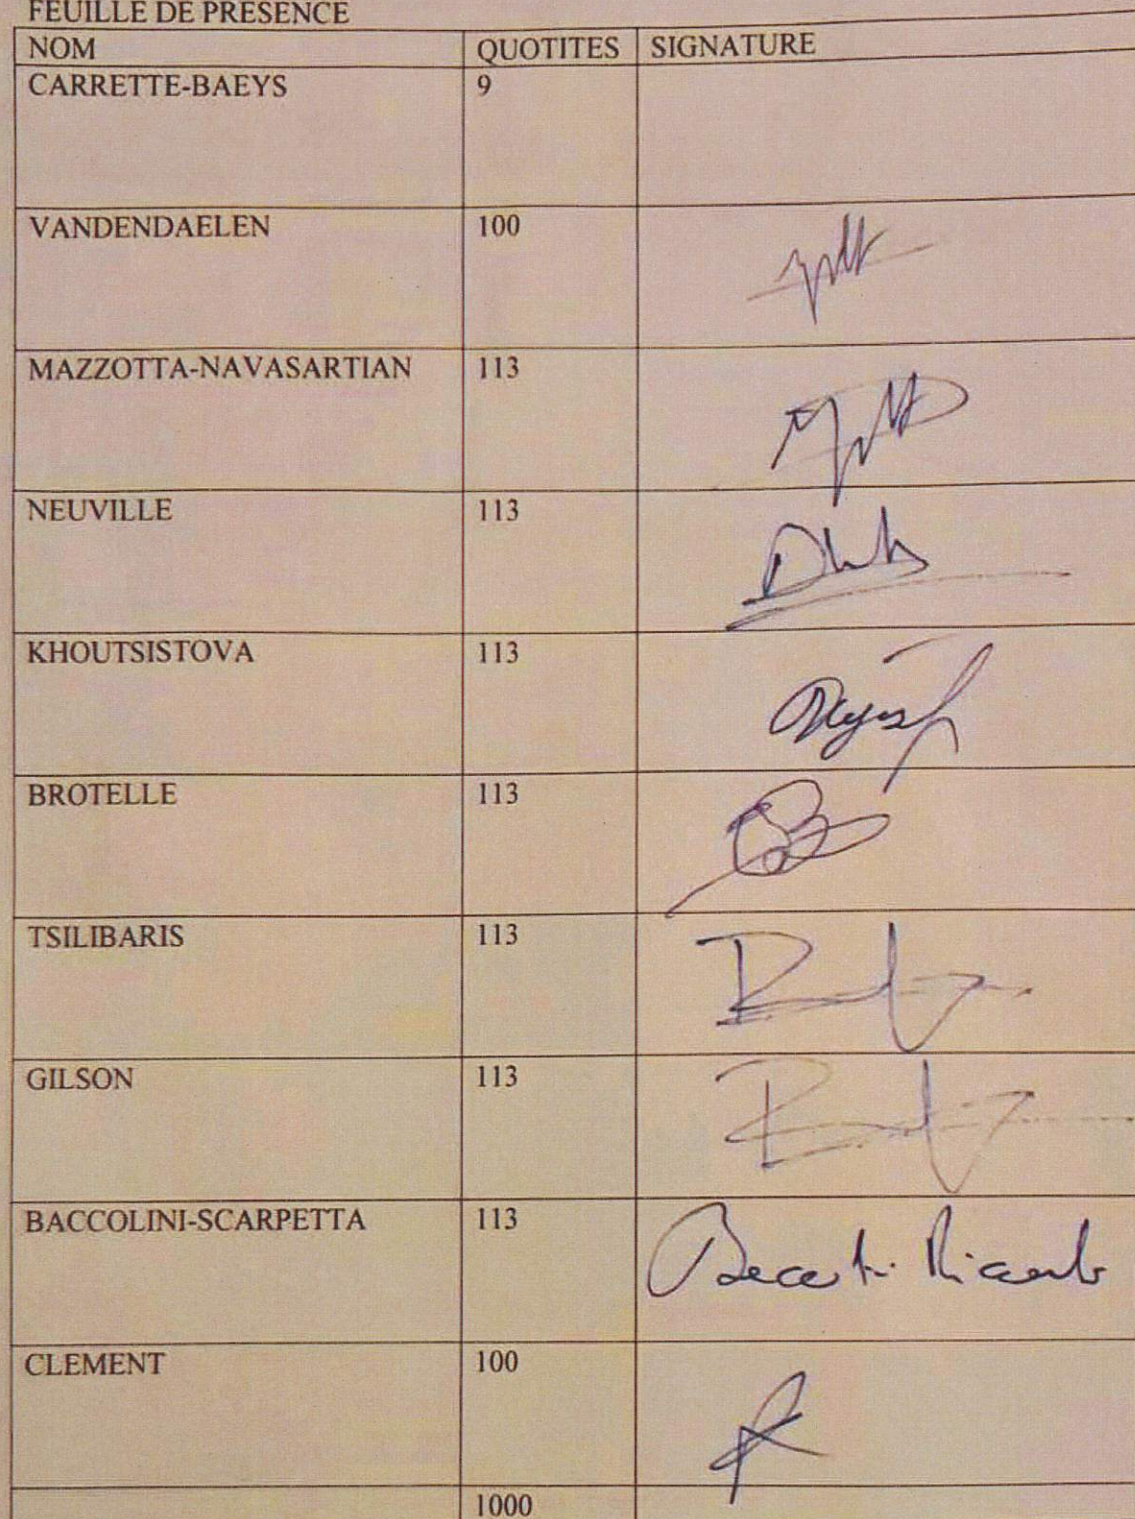 FEUILLE DE PRESENCE
NOM QUOTITES SIGNATURE
CARRETTE-BAEYS 9
VANDENDAELEN 100
MAZZOTTA-NAVASARTIAN 113
NEUVILLE 113
KHOUTSISTOVA 113
BROTELLE 113
TSILIBARIS 113
GILSON 113
BACCOLINI-SCARPETTA 113
CLEMENT 100
1000